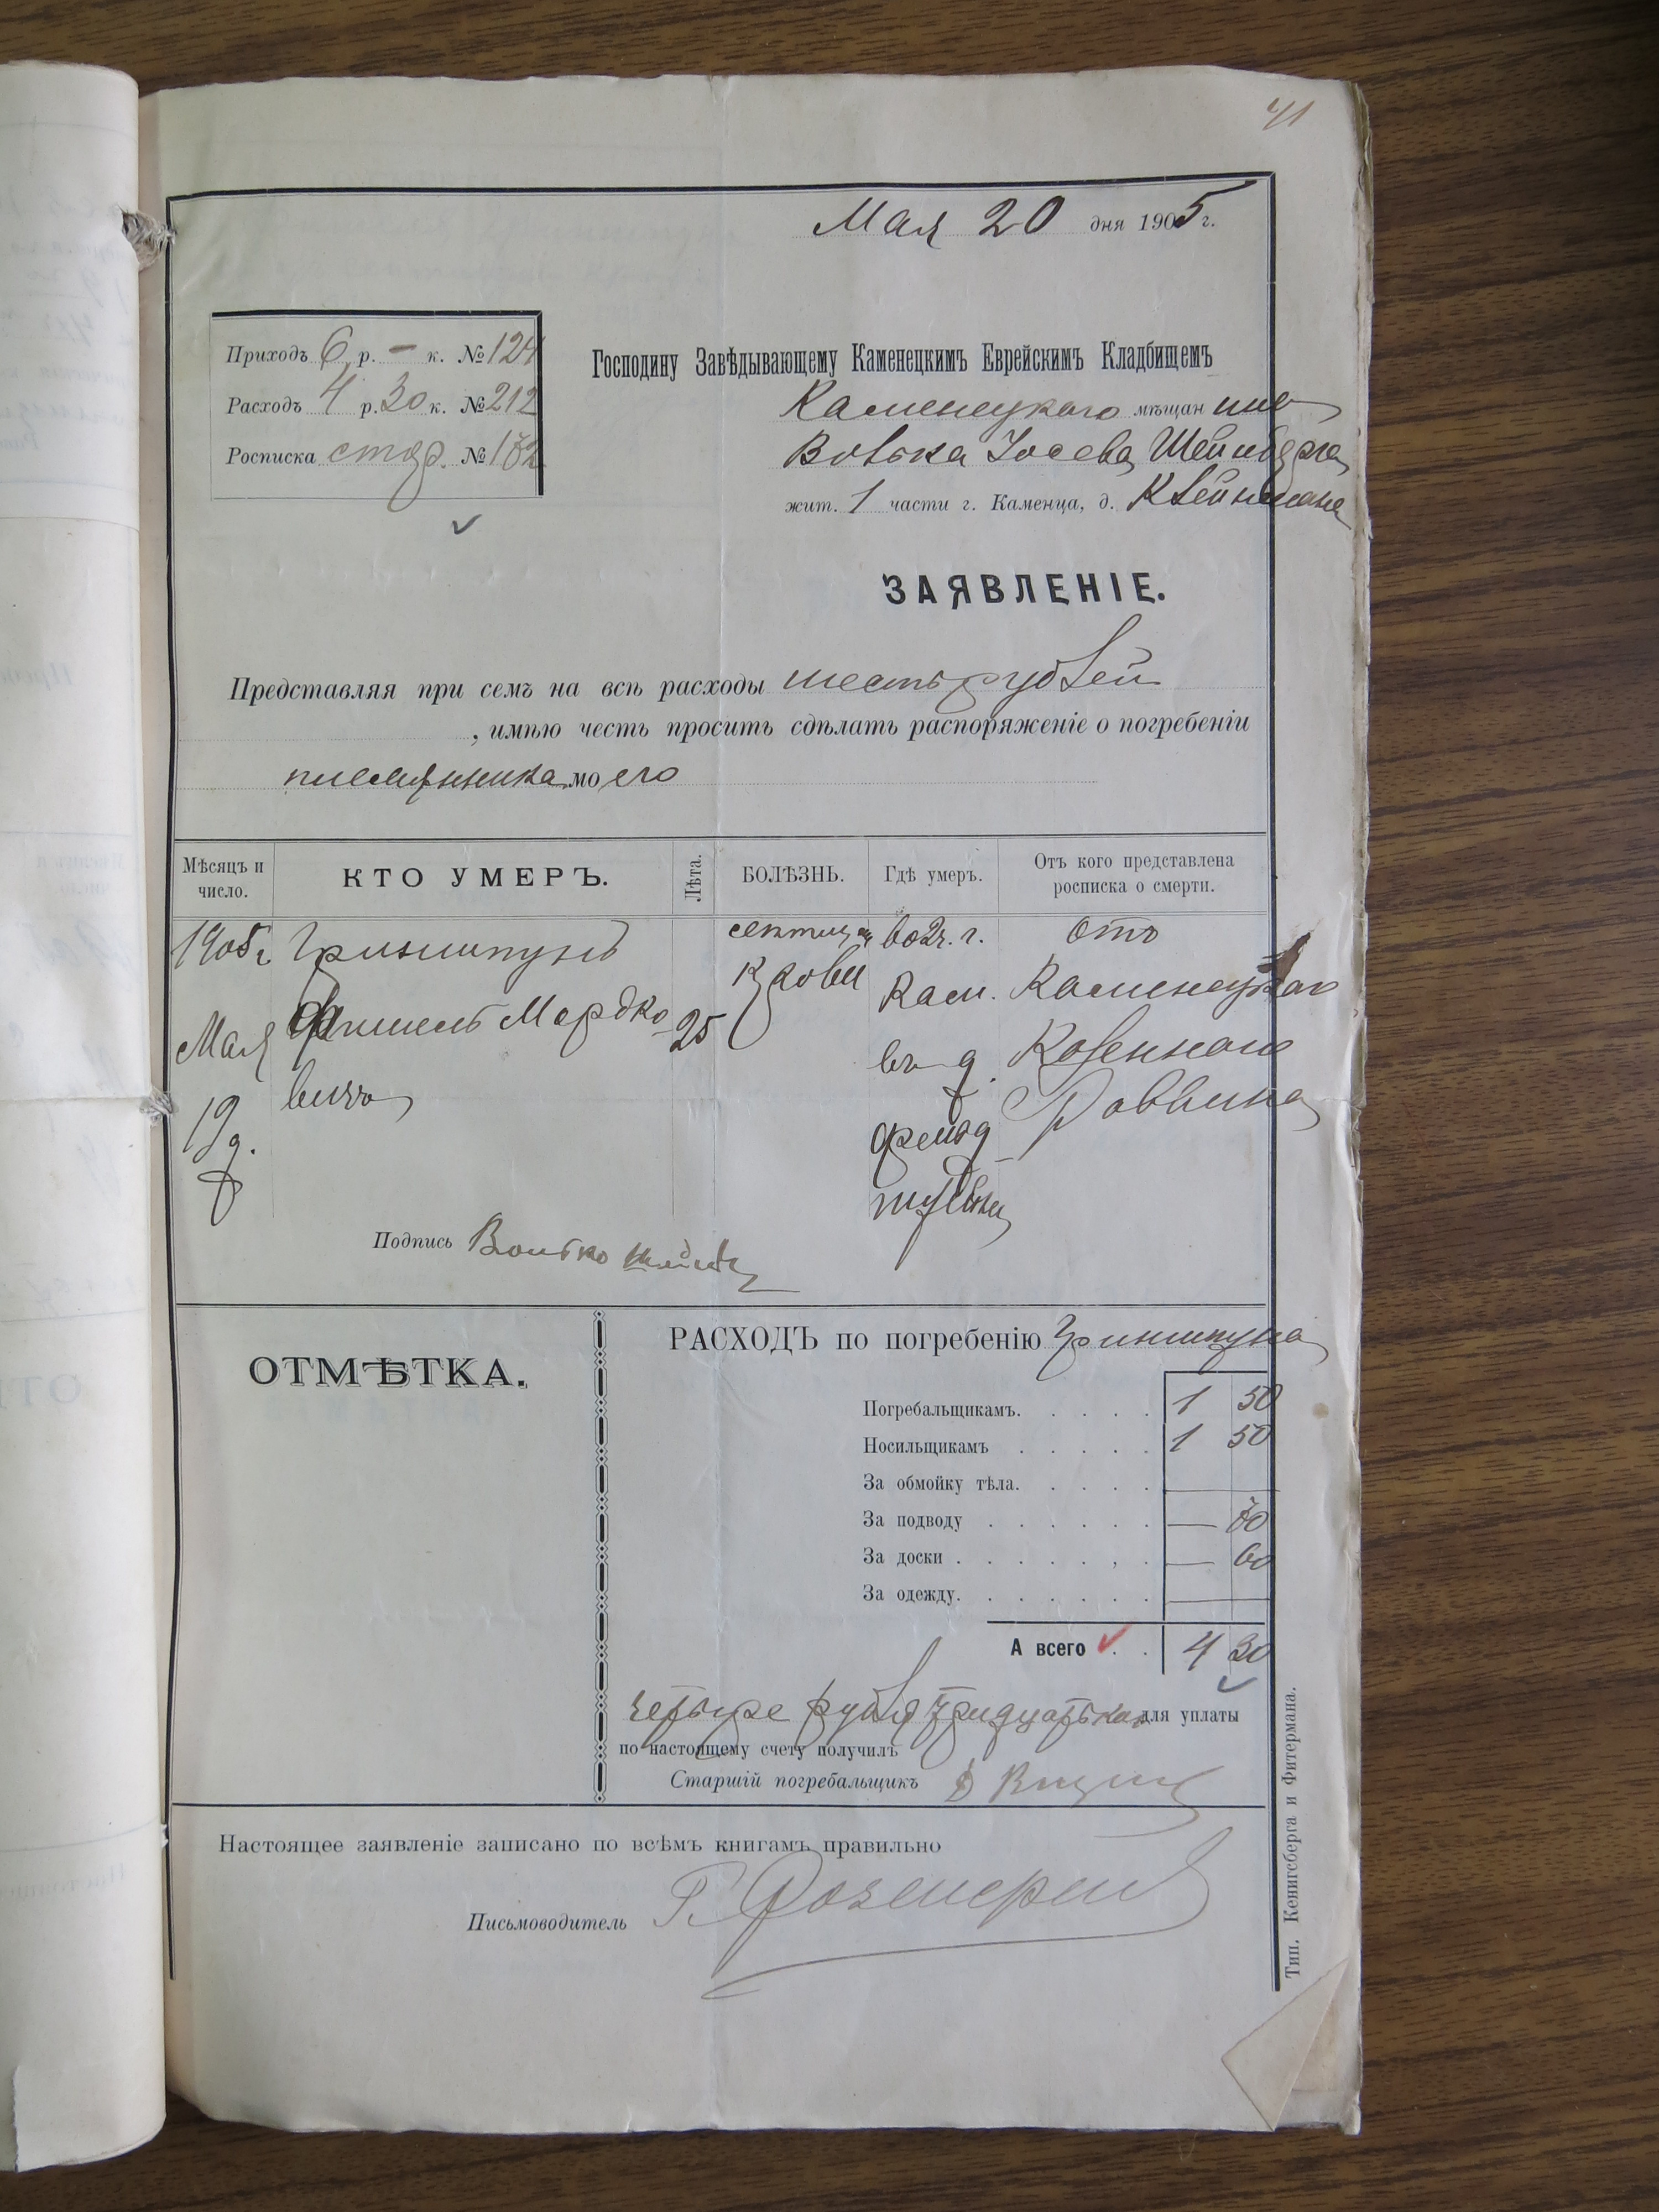 41
Мая 20 дня 1905 г.
Приходъ 6 р. — к. № 124
Расходъ 4 р. 30 к. № 212
Росписка стар. №
Господину Завѣдывающему Каменецкимъ Еврейскимъ Кладбищемъ
Каменецкаго мѣщанина
Вовька Іосева Шейнберга
жит. 1 части г. Каменца, д. Клейнмана
ЗАЯВЛЕНІЕ.
Представляя при семъ на всѣ расходы шесть рублей
, имѣю честь просить сдѣлать распоряженіе о погребеніи
племянника моего
Мѣсяцъ и число.
КТО УМЕРЪ.
Лѣта.
БОЛѢЗНЬ.
Гдѣ умеръ.
Отъ кого представлена росписка о смерти.
1905 г Гриншпунъ во 2 ч. г. отъ
Мая Мордко- 25 крови Кам. Каменецкаго
19 д. вичъ въ д. Казеннаго
Раввина
Подпись Волько
ОТМѢТКА.
РАСХОДЪ по погребенію Гриншпуна
Погребальщикамъ. 1 50
Носильщикамъ 1 50
За обмойку тѣла.
За подводу — 70
За доски — 60
За одежду.
А всего 4 30
четыре рубля тридцать коп для уплаты
по настоящему счету получилъ
Старшій погребальщикъ
Настоящее заявленіе записано по всѣмъ книгамъ правильно
Письмоводитель
Тип. Кенигсберга и Фитермана.